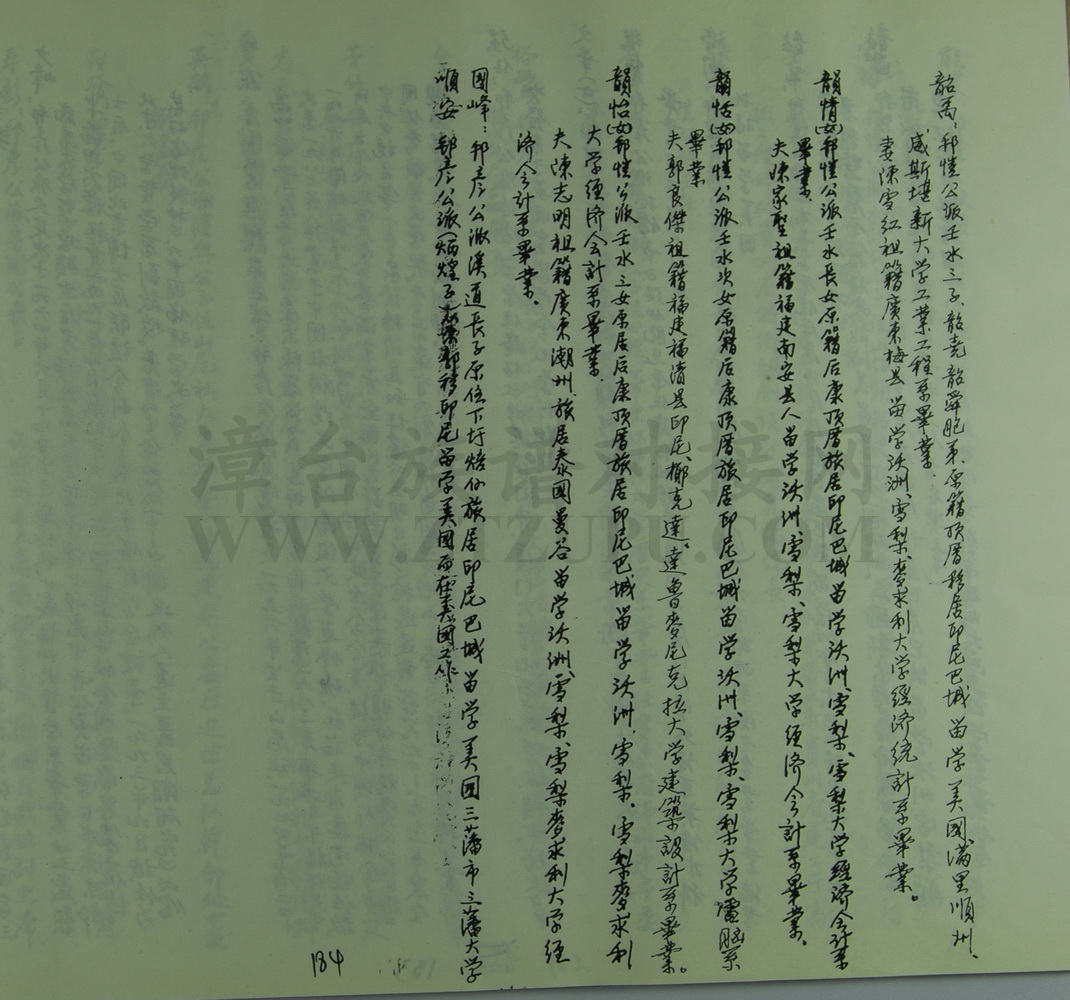 韶禹：邦愷公派壬水三子韶堯韶舜胞弟原籍頂厝移居印尼巴城留学美國滿里順州、
威斯堪新大学工業工程系畢業。
妻陳雪紅祖籍廣東梅县留学汰洲、雪梨、麥求利大学經济統計系畢業。
韻情(女)邦愷公派壬水長女原籍后康頂厝旅居印尼巴城留学汰洲、雪梨、雪梨大学經济会計系
畢業。
夫陳家聖祖籍福建南安县人留学汰洲、雪梨、雪梨大学經济会計系畢業。
韻恬(女)邦愷公派壬水次女原籍后康頂厝旅居印尼巴城留学汰洲、雪梨、雪梨大学電腦系
畢業
夫郭良傑祖籍福建福清县印尼、椰克達、達魯麥尼克拉大学建築設計系畢業。
韻怡(女)邦愷公派壬水三女原居后康頂厝旅居印尼巴城留学汰洲、雪梨、雪梨麥求利
大学經济会計系畢業
夫陳志明祖籍廣東潮州旅居泰國曼谷留学汰洲、雪梨、雪梨麥求利大学經
济会計系畢業。
國峰：邦彥公派溪道長子原住下圩焙仔旅居印尼巴城留学美國三藩市三藩大学
順安 邦彥公派(炳煌子)移印尼留学美國在美國工作
184
漳台族谱对接网
WWW.ZTZUPU.COM